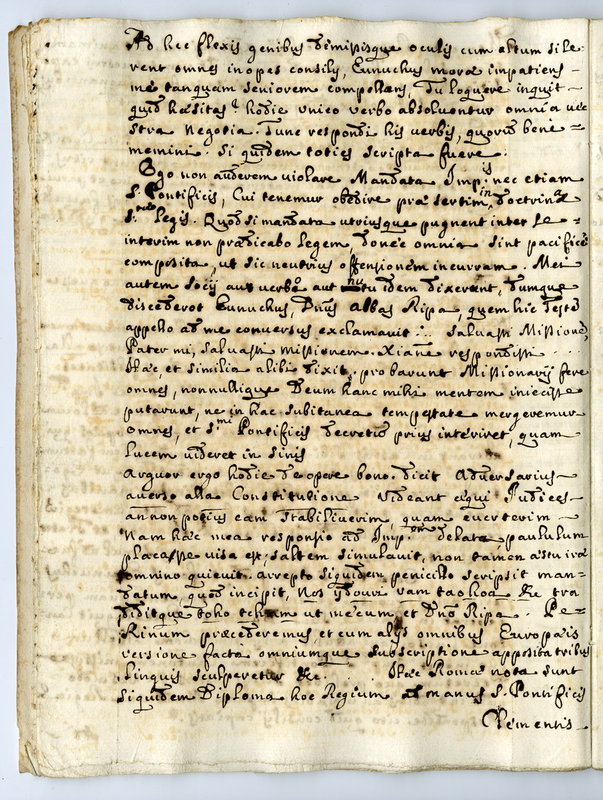 Ad hec flexis genibus demissisque oculis cum altum sile
rent omnes inopes consilij, Eunuchus moræ impatiens
me tanquam seniorem compellans, Tu loquere inquit
quid hæsitas? hodie unico verbo absolventur omnia ve
stra Negotia. Tunc respondi his verbis, quorum bene
memini. Si quidem toties scripta fuere.
Ego non auderem violare Mandata Imp.ris nec etiam
S. Pontificis, Cui tenemur obedire præsertim in doctrina
S. legis. Quod si mandata utriusque pugnent inter se
interim non prædicabo legem, donec omnia sint pacifice
composita, ut sic neutrius offensionem incurram. Mei
autem Socij aut verbo aut nutu idem dixerant, dumque
discederet Eunuchus, Dnus Abbas Ripa, quem hic testem
appello ad me conversus exclamavit... Salvasti Missionem,
Pater mi, Salvasti missionem. Xiane respondisti....
Hæc, et similia alibi dixit, probarunt Missionarij fere
omnes, nonnullique Deum hanc mihi mentem iniecisse
putarunt, ne in hac subitanea tempestate mergeremur
omnes, et S.mi Pontificis decretio prius interiret, quam
lucem videret in Sinis
Arguor ergo hodie de opere bono. dicit Adversarius
averso alla Constitutione Videant æqui Judices
an non potius eam stabiliverim quam everterim
Nam hæc mea responsio ad Imp.orem delata paululum
placasse visa est, saltem simulavit, non tamen astu ira
omnino quievit. arrepto siquidem penicillo scripsit man-
datum quod incipit, Nos
diditque
ut mecum, et Dno Ripa. Pe-
Rinum præcederemus et cum alijs omnibus Europæis
versione facta omniumque subscriptione apposita tribus
linguis sculperetur &c. Hæc Romæ nota sunt
siquidem Diploma hoc Regium ad manus S. Pontificis
Clementis